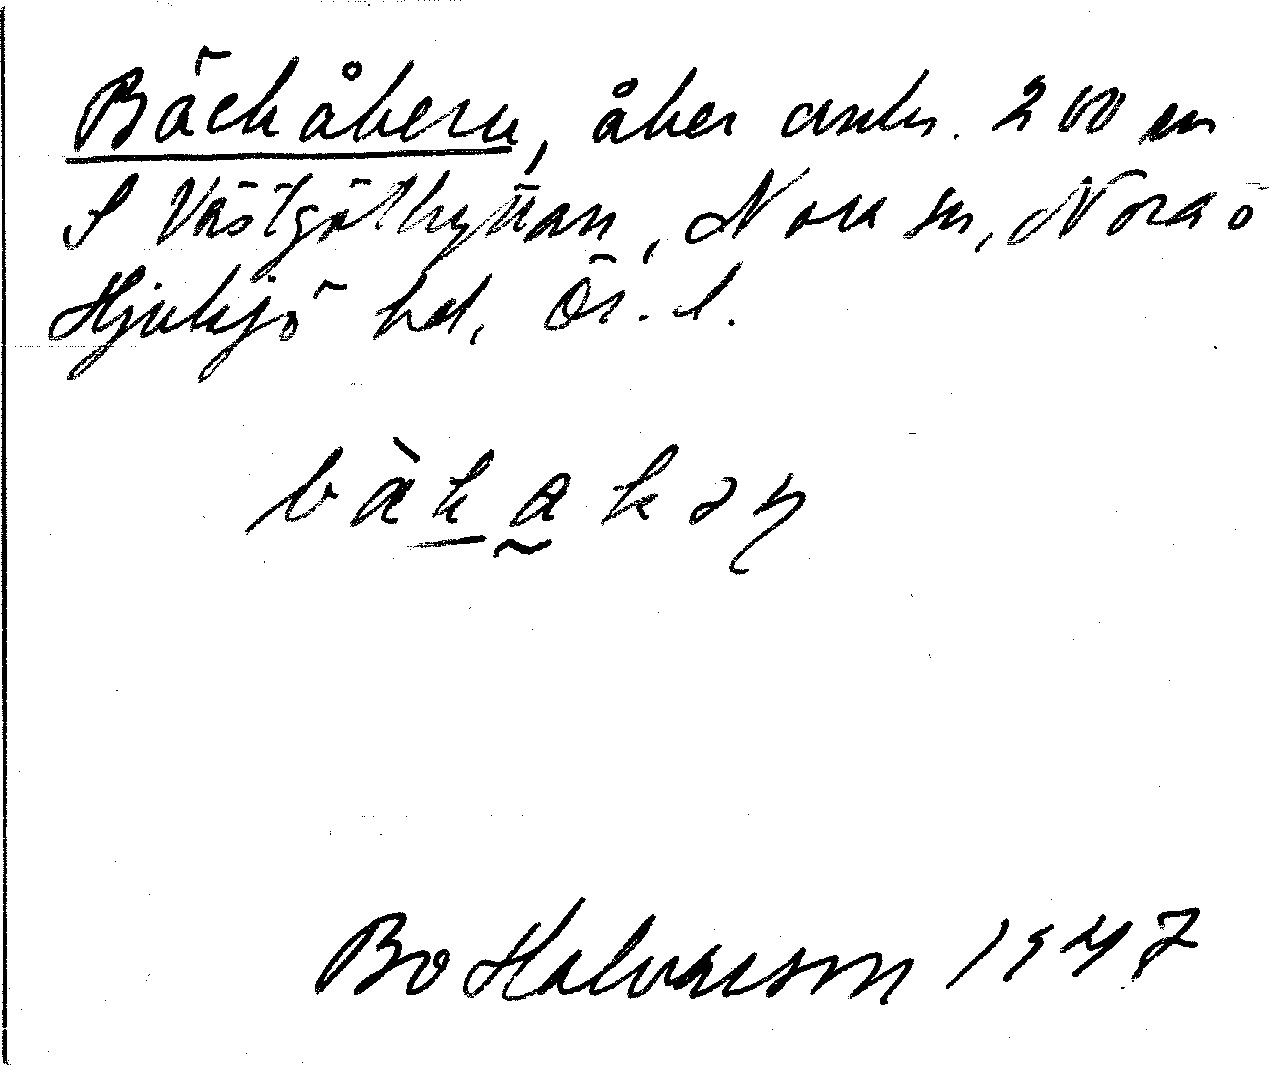 Bäckåkern, åker omkr. 200 m
S Västgöthyttan, Nora sn, Nora o
Hjulsjö hd, Ör. l.
bàkakən
Bo Halvarsson 1947